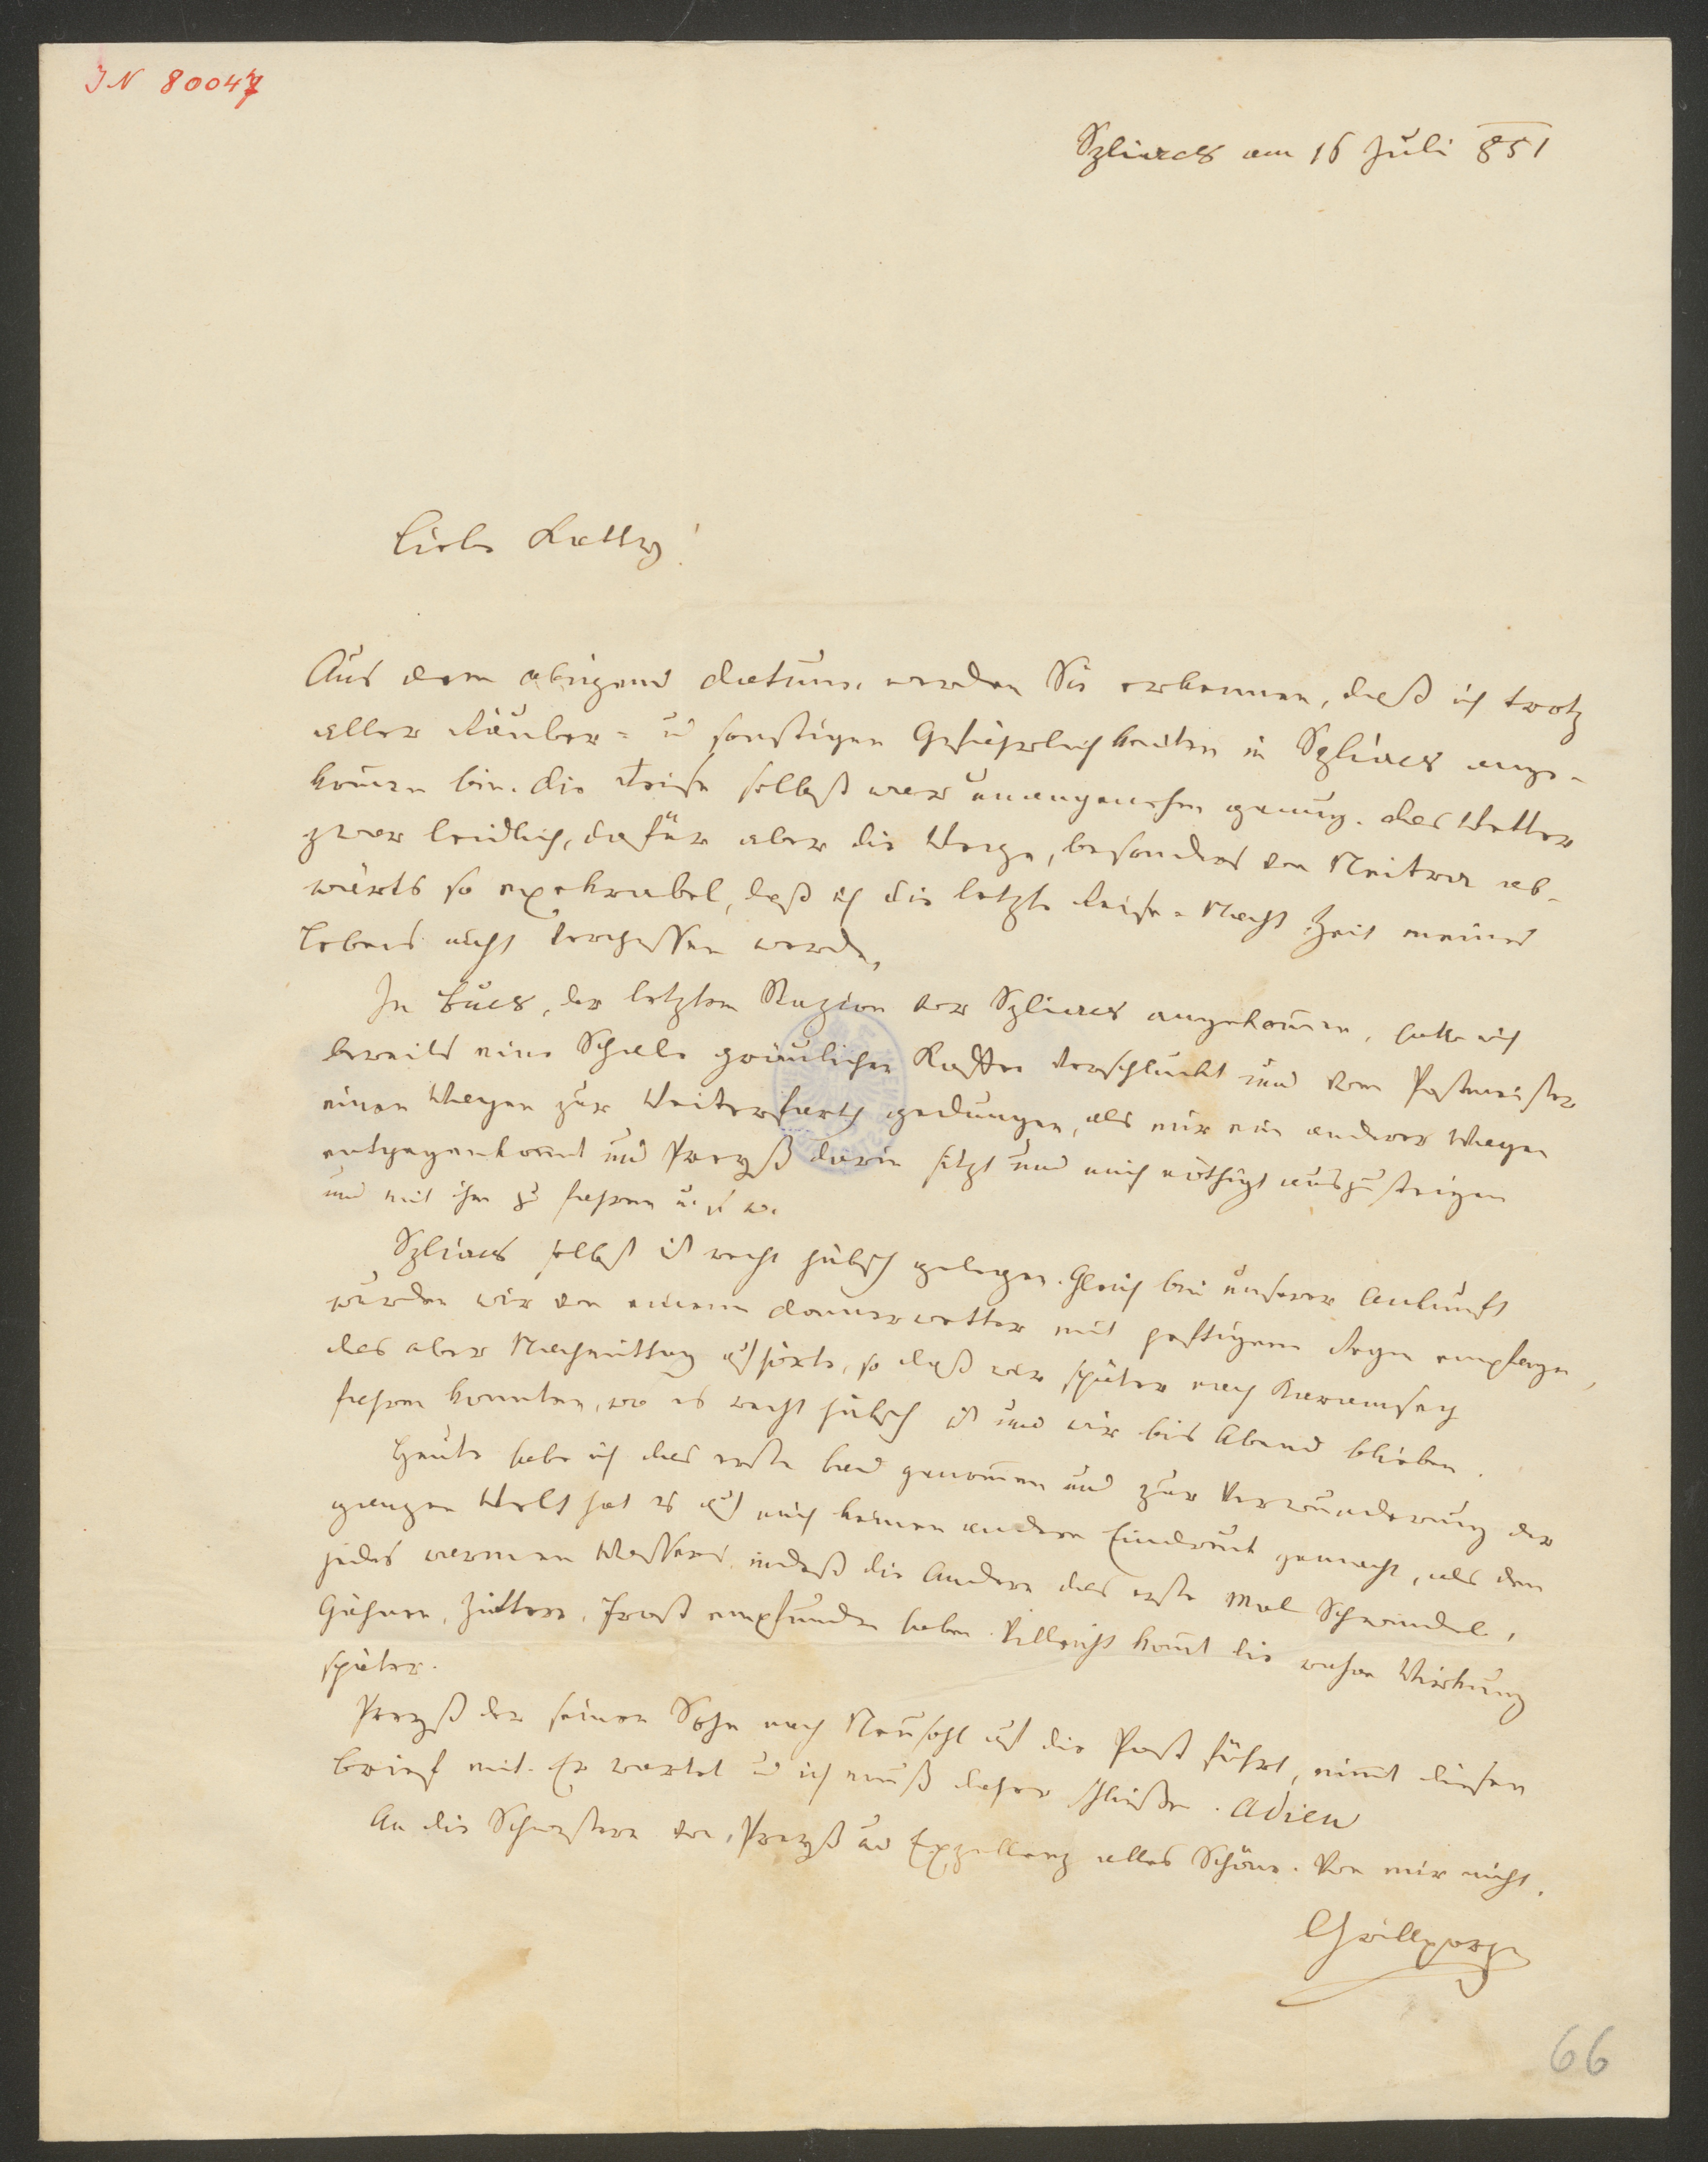 IN 80047
Szliacs am 16 Juli 851
Liebe Katty!
Aus dem obigen Datum werden Sie erkennen, daß ich trotz
aller Räuber- u sonstigen Gefährlichkeiten in Szliacs ange-
kom̄en bin. Die Reise selbst war unangenehm genug. Das Wetter
zwar leidlich, dafür aber die Wege, besonders von Neitra ab-
wärts so exekrabel, daß ich die letzte Reise-Nacht Zeit meines
Lebens nicht vergessen werde.
In Bucs, der letzten Stazion vor Szliacs angekom̄en, hatte ich
bereits eine Schale gräulichen Kaffee verschluckt und vom Postmeister
einen Wagen zur Weiterfarth gedungen, als mir ein anderer Wagen
entgegenkom̄t und Preyß darin sitzt und mich nöthigt auszusteigen
und mit ihm zu fahren u. s. w.
Szliacs selbst ist recht hübsch gelegen. Gleich bei unserer Ankunft
wurden wir von einem Donnerwetter mit heftigem Regen empfangen,
das aber Nachmittag aufhörte, so daß wir später nach
fahren konnten, wo es recht hübsch ist und wir bis Abend blieben.
Heute habe ich das erste Bad genom̄en und zur Verwunderung der
ganzen Welt hat es auf mich keinen andern Eindruck gemacht, als den
jedes warmen Wassers, indeß die Andern das erste Mal Schwindel,
Gähnen, Zittern, Frost empfunden haben. Vielleicht kom̄t die wahre Wirkung
später.
Preyß der seinen Sohn nach Neusohl auf die Post führt, nim̄t diesen
Brief mit. Er wartet u ich muß daher schließen. Adieu
An die Schwestern von Preyß und Exzellenz alles Schöne. Von mir nicht.
Grillparzer
66